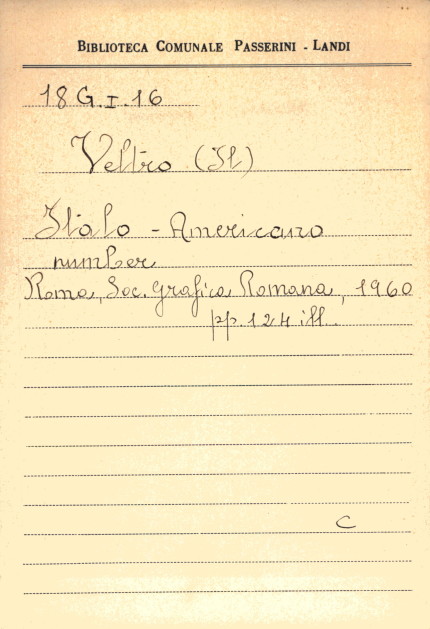 BIBLIOTECA COMUNALE PASSERINI - LANDI
18 G.I.16
Veltro (Il)
Italo - Americano
number
Roma, Soc. Grafica Romana, 1960
pp. 124 ill.
C